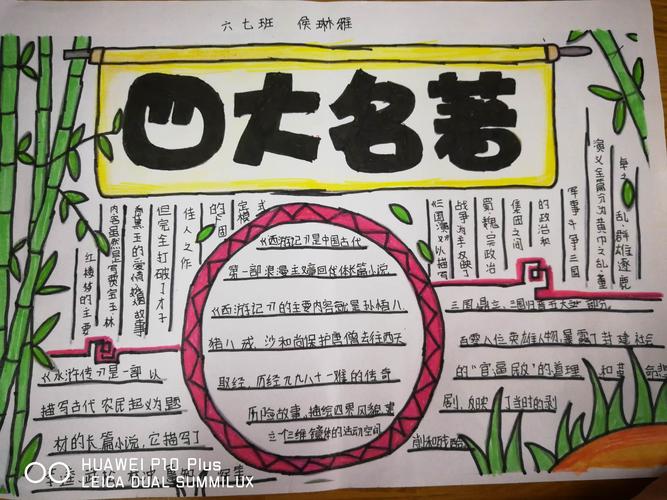 六七班 侯琳雅
四大名著
红楼梦的主要
内容虽然是写贾宝玉林
黛玉的爱情婚姻故事
但完全打破了才子
佳人之作
的
定模式
《西游记》是中国古代
第一部浪漫主义章回体长篇小说
《西游记》的主要内容就是孙悟
猪八戒、沙和尚保护唐僧去往西天
取经,历经九九八十一难的传奇
历险故事,描绘四界风貌,
立个三维 的活动空间
《三国演义》以描写
战争为主,反映了
蜀魏 政治
集团之间
的政治和
军事斗争三国
演义全篇分为黄巾之乱董
卓之乱、群雄逐鹿
三国鼎立、三国归晋五大 部分
百零八位英雄人物,暴露了封建社会
的“官逼民反”的道理 和
剧,反映了当时的
削和残酷
《水浒传》是一部以
描写古代农民起义为题
材的长篇小说,它描写了
HUAWEI P10 Plus
LEICA DUAL SUMMILUX